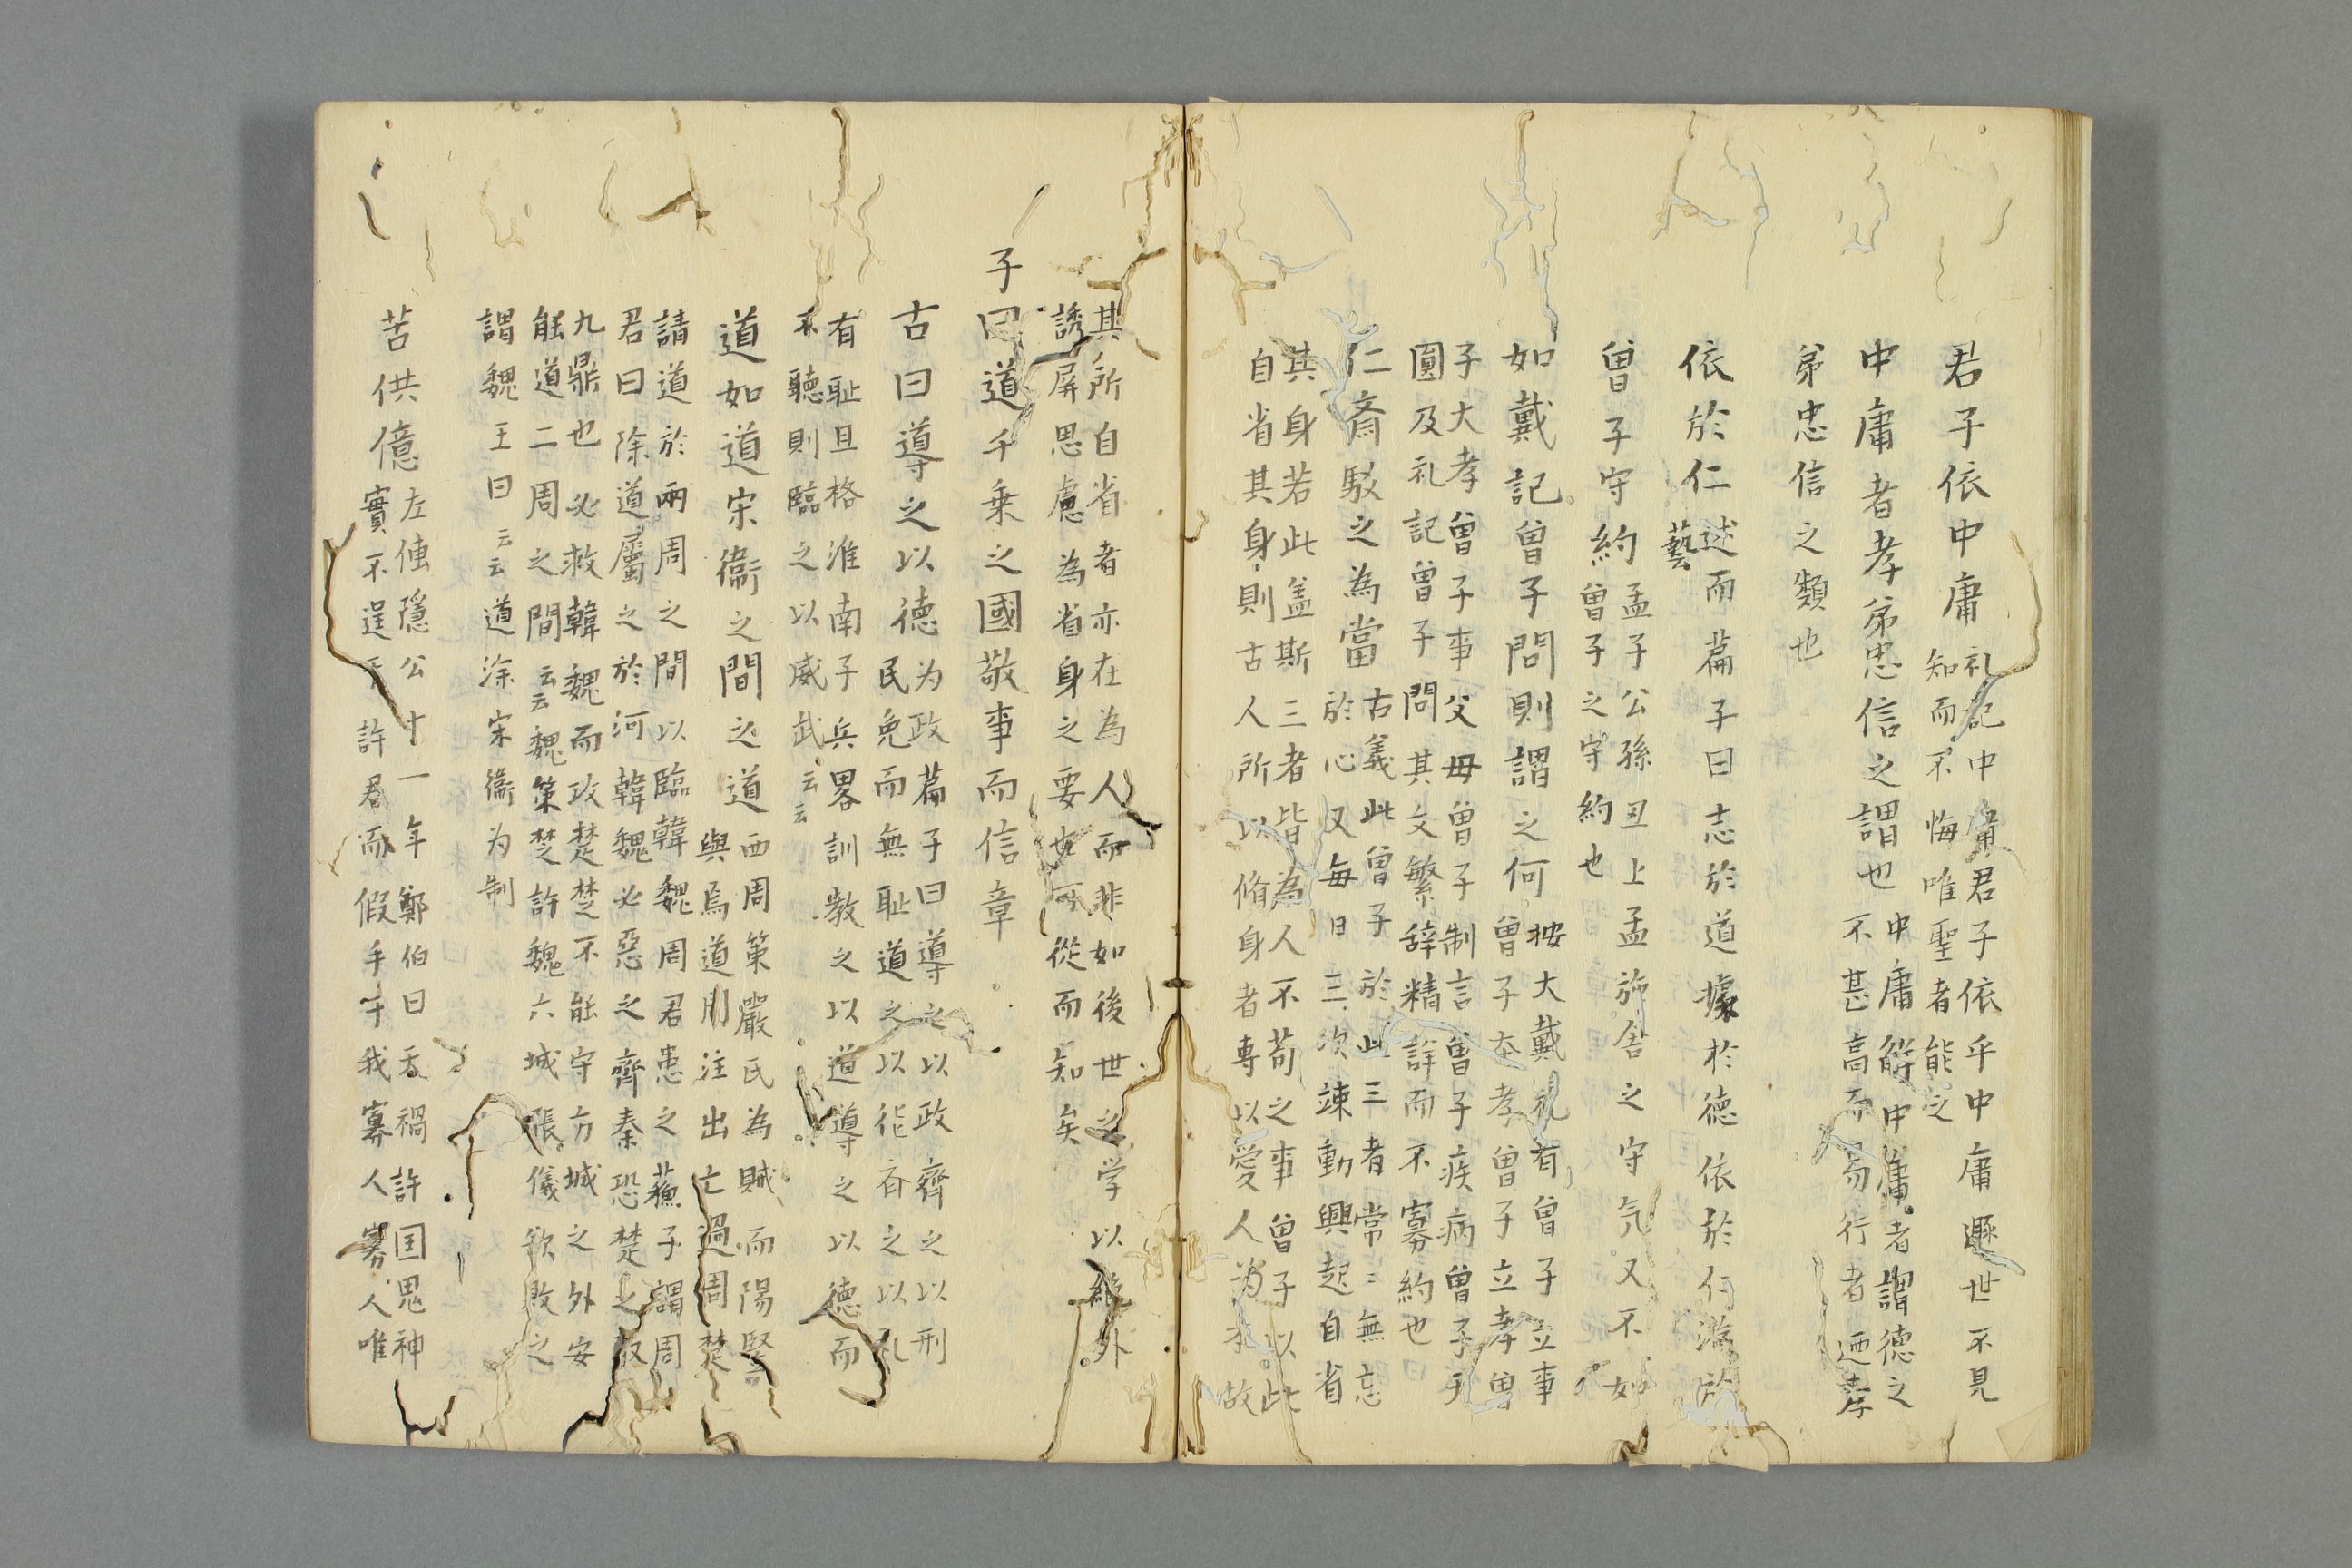 君子依中庸
礼記中庸君子依乎中庸遯世不見
知而不悔唯聖者能之
中庸者孝弟忠信之謂也
中庸解中庸者謂徳之
不甚高而易行者廼孝
弟忠信之類也
依於仁
述而篇子曰志於道據於徳依於仁游於
藝
曽子守約
孟子公孫丑上孟施舎之守気又不如
曽子之守約也
如戴記曽子問則謂之何
按大戴礼有曽子立事
曽子本孝曽子立孝曽
子大孝曽子事父母曽子制言曽子疾病曽子天
圓及礼記曽子問其文繁辞精詳而不寡約也
仁斎駁之為當
古義此曽子於此三者常〻無忘
於心又毎日三次竦動興起自省
其身若此盖斯三者皆為人不苟之事曽子以此
自省其身則古人所以脩身者専以愛人為本故
其所自省者亦在為人而非如後世之学以絶外
誘屏思慮為省身之要也可從而知矣
子曰道千乗之國敬事而信章
古曰導之以徳
为政篇子曰導之以政齊之以刑
民免而無耻道之以徳斉之以礼
有耻且格淮南子兵畧訓教之以道導之以徳而
不聴則臨之以威武云云
道如道宋衞之間之道
西周策嚴氏為賊而陽竪
與焉道周注出亡過周楚
請道於兩周之間以臨韓魏周君患之蘓子謂周
君曰除道屬之於河韓魏必惡之齊秦恐楚之取
九鼎也必救韓魏而攻楚楚不能守方城之外安
能道二周之間云云魏策楚許魏六城張儀欲敗之
謂魏王曰云云道涂宋衞为制
苦供億
左傳隱公十一年鄭伯曰天禍許国鬼神
實不逞于許君而假手于我寡人寡人唯